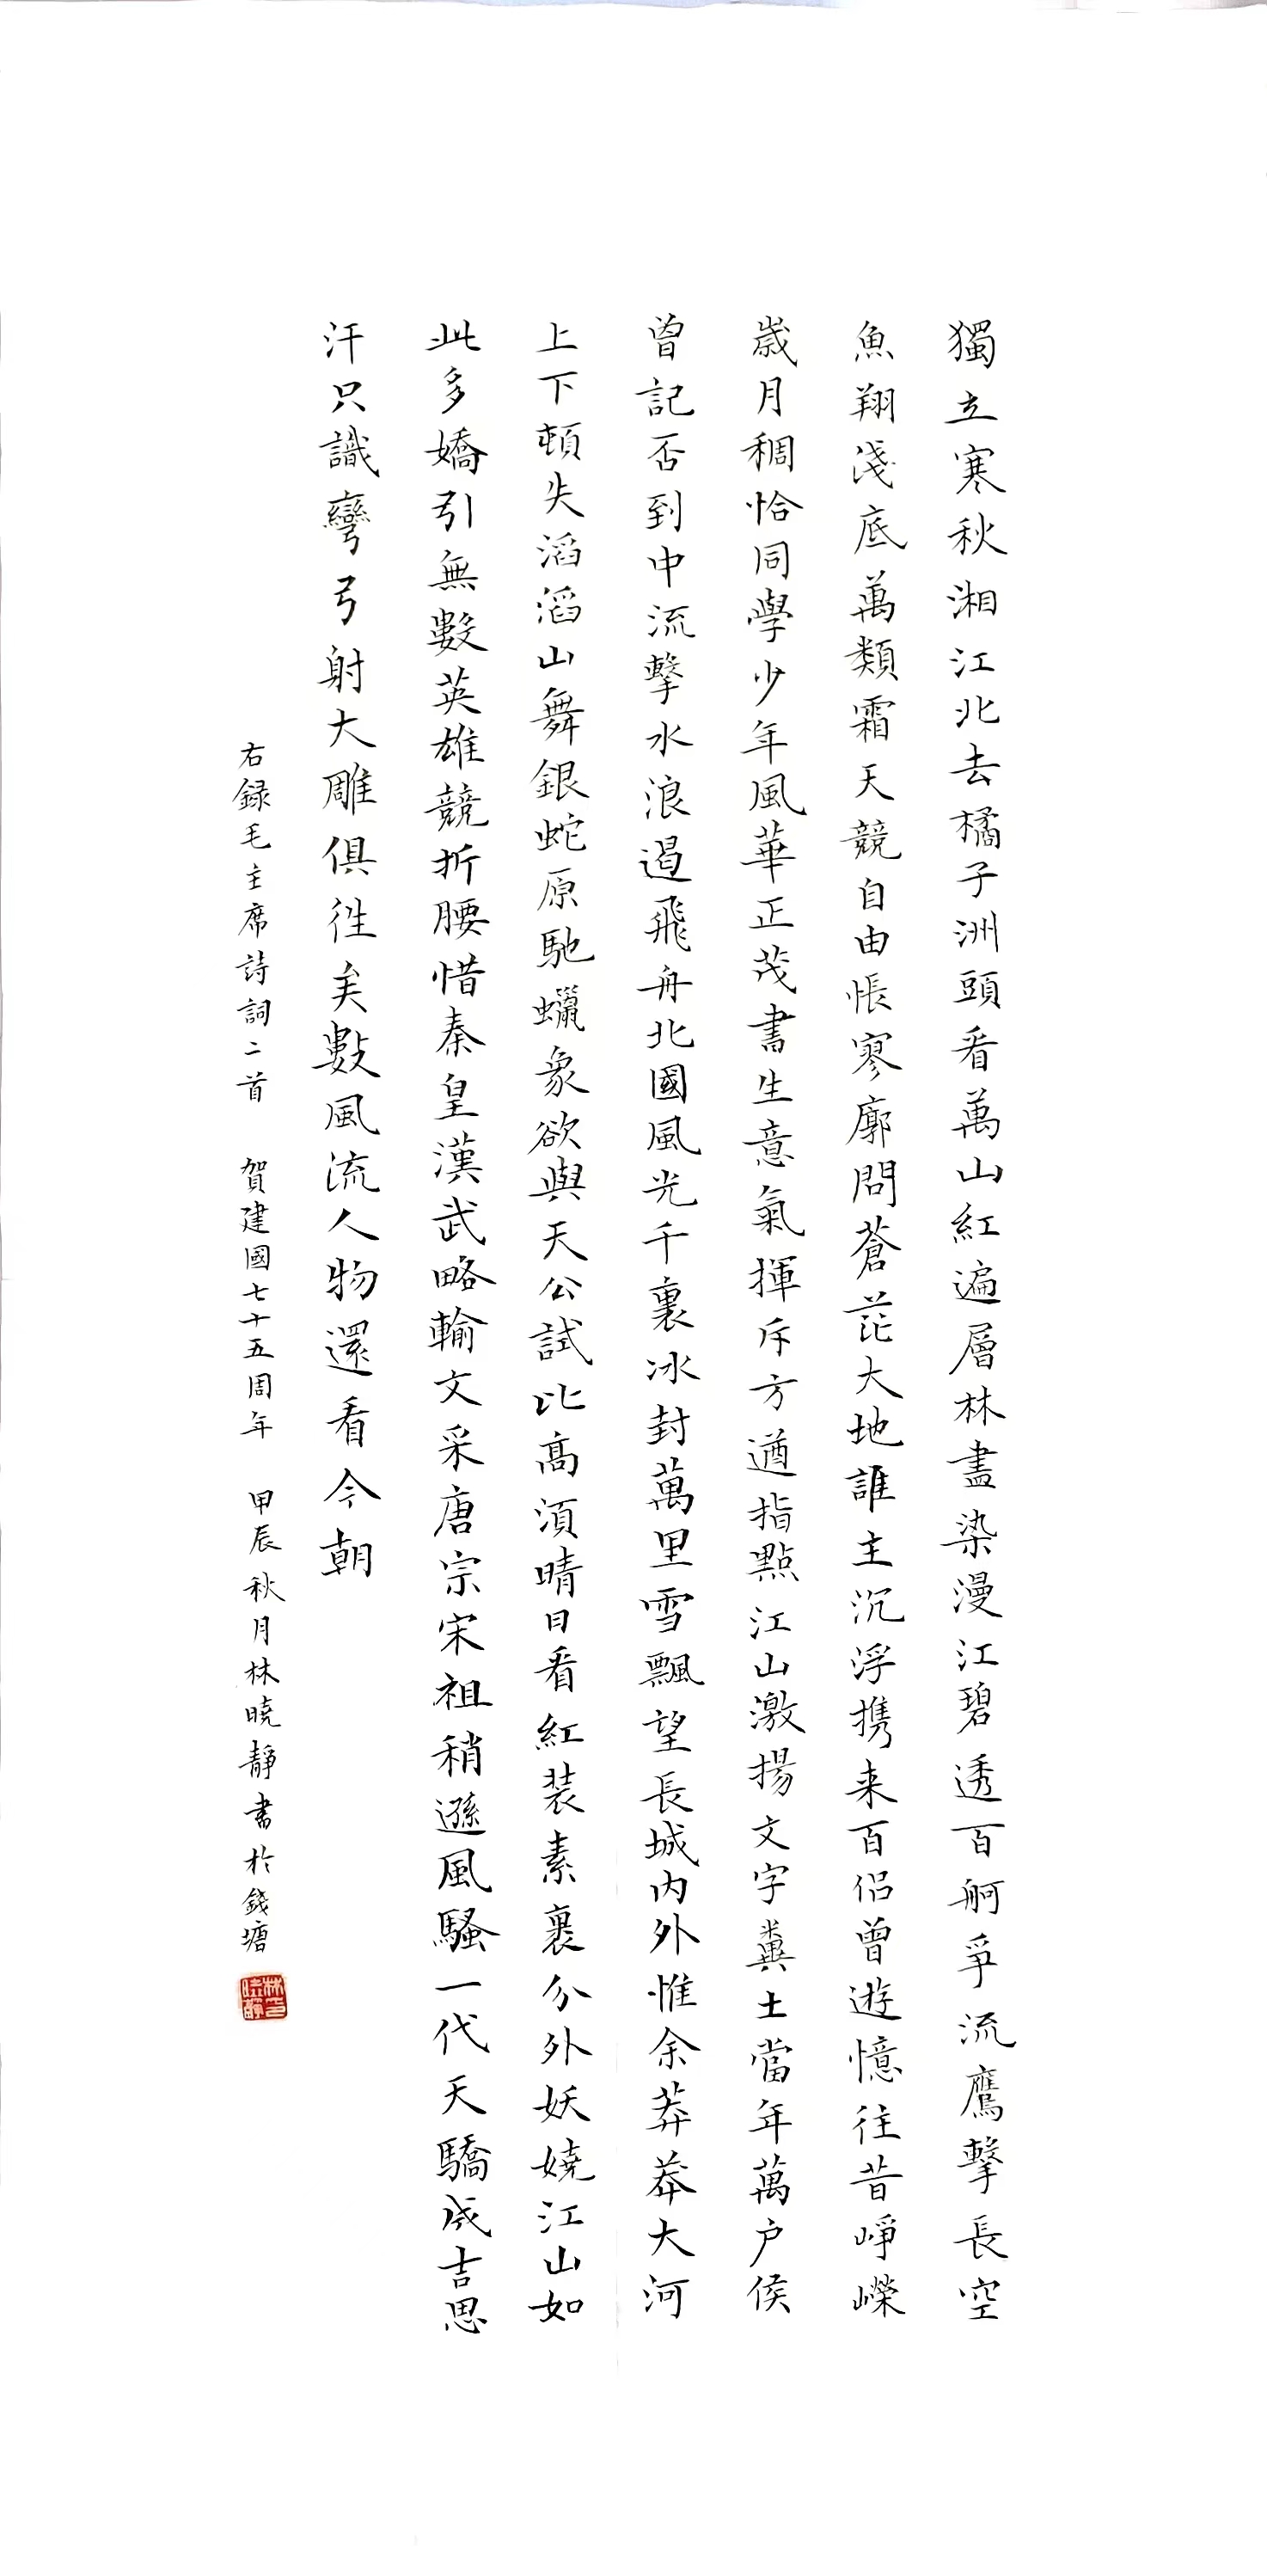 獨立寒秋湘江北去橘子洲頭看萬山紅遍層林盡染漫江碧透百舸爭流鷹擊長空
魚翔淺底萬類霜天競自由悵寥廓問蒼茫大地誰主沉浮携来百侣曾遊憶往昔崢嶸
歲月稠恰同學少年風華正茂書生意氣揮斥方遒指點江山激揚文字糞土當年萬户侯
曾記否到中流擊水浪遏飛舟北國風光千裏冰封萬里雪飄望長城内外惟余莽莽大河
上下頓失滔滔山舞銀蛇原馳蠟象欲與天公試比高須晴日看紅装素裹分外妖嬈江山如
此多嬌引無數英雄競折腰惜秦皇漢武略輸文采唐宗宋祖稍遜風騷一代天驕成吉思
汗只識彎弓射大雕俱往矣數風流人物還看今朝
右録毛主席詩詞二首 賀建國七十五周年 甲辰秋月林曉靜書於錢塘
林曉靜印